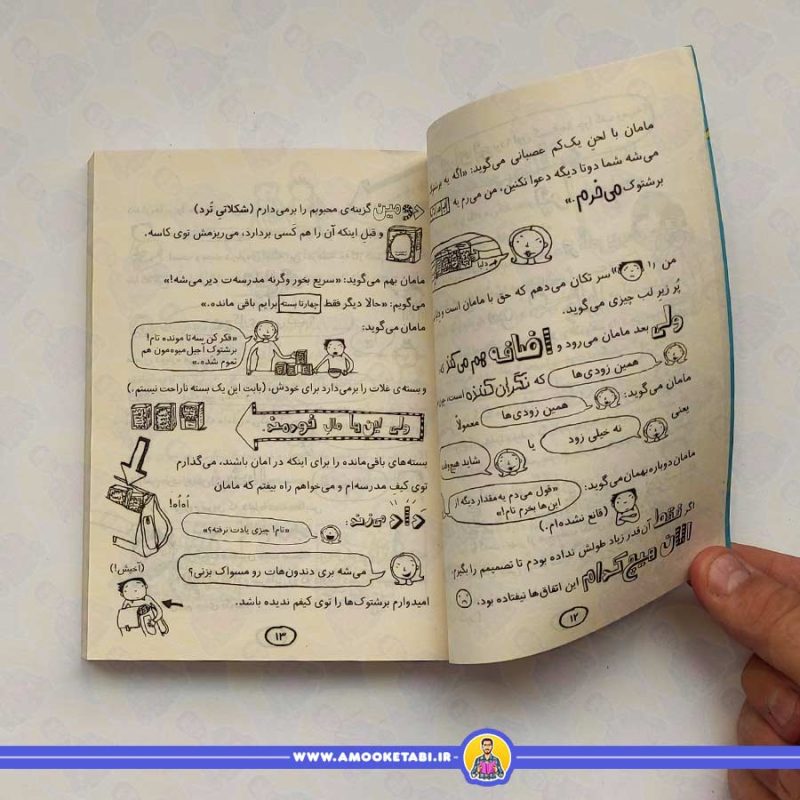 مامان با لحن یک‌کم عصبانی می‌گوید: «اگه یه برشتوک
می‌شه شما دوتا دیگه دعوا نکنین، من می‌رم یه
برشتوک می‌خرم.»
من را سر تکان می‌دهم که حق با مامان است و
پُر زیر لب چیزی می‌گوید.
ولی بعد مامان می‌رود و اضافه هم می‌کند که
همین زودی‌ها
که نگران‌کننده است، چون
مامان می‌گوید:
همین زودی‌ها
معمولاً
یعنی
نه خیلی زود
یا
شاید هیچ‌وقت
مامان دوباره بهمان می‌گوید:
«قول می‌دم یه مقدار دیگه از
این‌ها بخرم تام!»
(قانع نشده‌ام.)
اگر فقط آن‌قدر زیاد طولش نداده بودم تا تصمیمم را بگیرم،
هیچ‌کدام این اتفاق‌ها نیفتاده بود.
۱۲
دومین گزینه‌ی محبوبم را برمی‌دارم (شکلاتیِ تُرد)
و قبلِ اینکه آن را هم کسی بردارد، می‌ریزمش توی کاسه.
مامان بهم می‌گوید: «سریع بخور وگرنه مدرسه‌ت دیر می‌شه!»
می‌گویم: «حالا دیگر فقط چهارتا بسته برایم باقی مانده.»
مامان می‌گوید:
«فکر کن سه‌تا مونده تام!
برشتوک آجیل‌میوه‌مون هم
تموم شده.»
و بسته‌ی غلات را برمی‌دارد برای خودش. (بابتِ این یک بسته ناراحت نیستم.)
ولی این‌ها مالِ خودمند.
بسته‌های باقی‌مانده را برای اینکه در امان باشند، می‌گذارم
توی کیف مدرسه‌ام و می‌خواهم راه بیفتم که مامان
اُه‌اُه!
داد می‌زند:
«تام! چیزی یادت نرفته؟»
می‌شه بری دندون‌هات رو مسواک بزنی؟
(آخیش!)
امیدوارم برشتوک‌ها را توی کیفم ندیده باشد.
۱۳
WWW.AMOOKETABI.IR